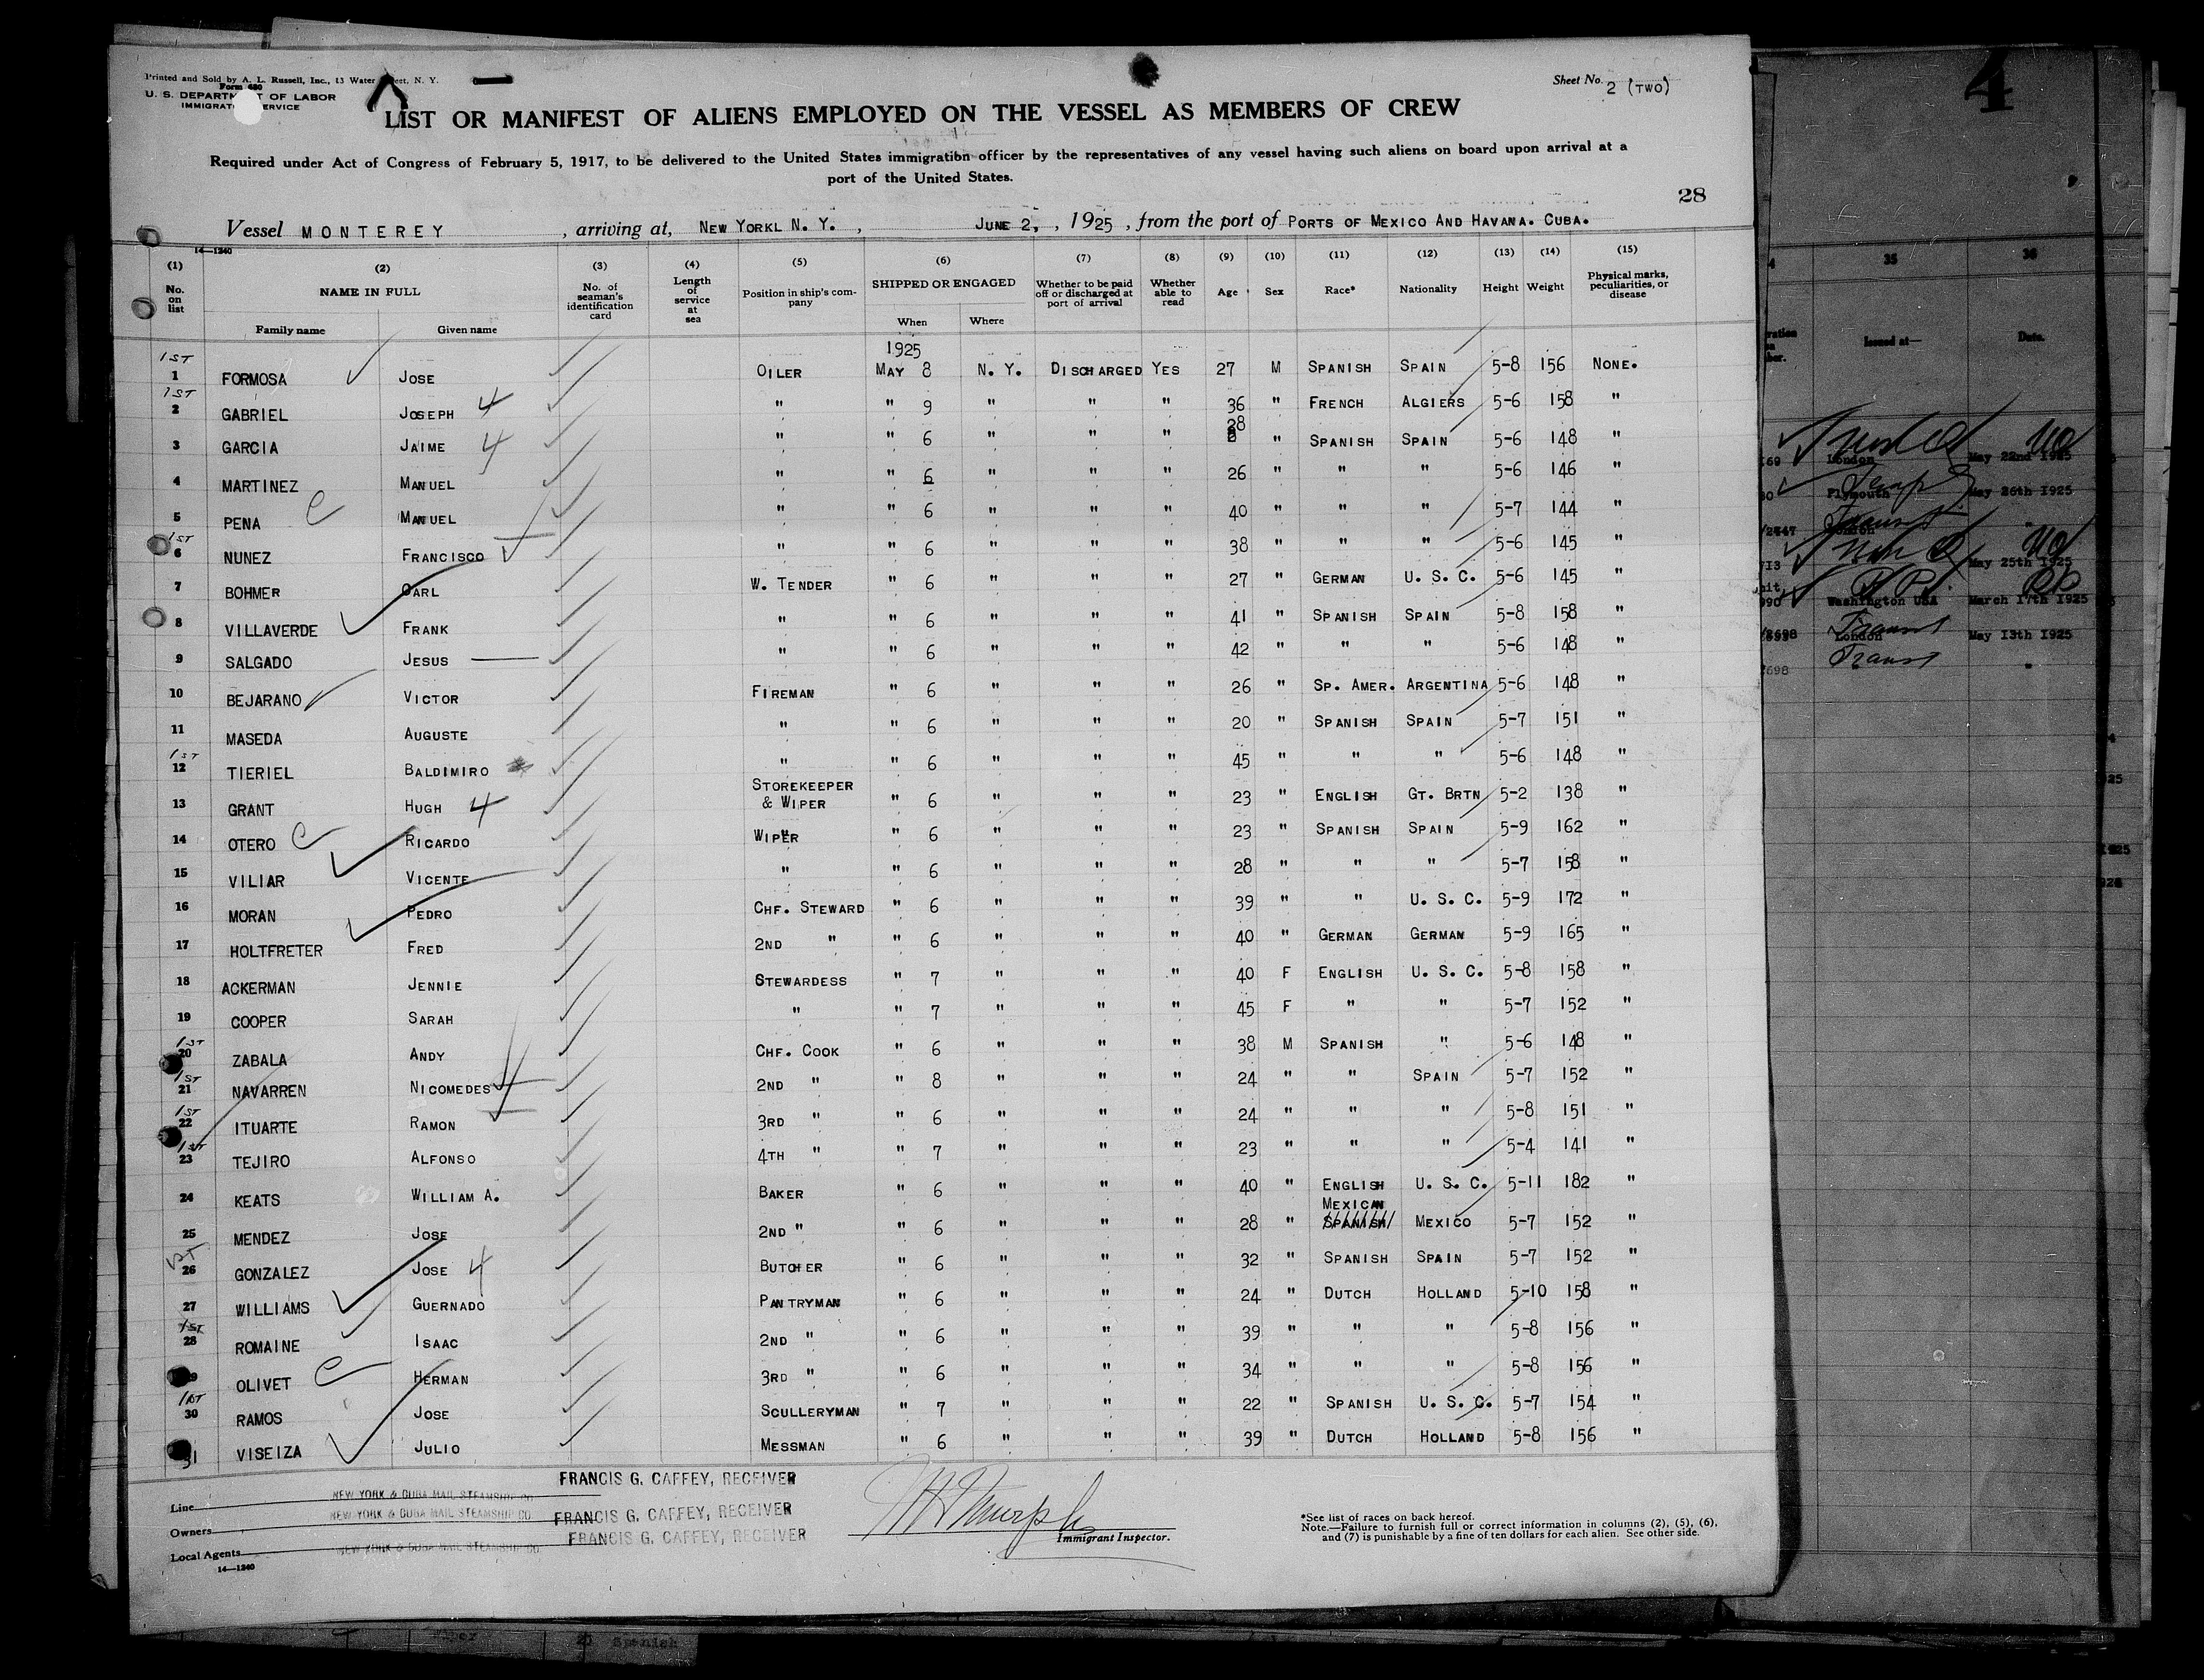 Printed and Sold by A. L. Russell, Inc., 13 Water Street, N. Y.
Form 680
U. S. DEPARTMENT OF LABOR
IMMIGRATION SERVICE
Sheet No. 2 (TWO)
4
LIST OR MANIFEST OF ALIENS EMPLOYED ON THE VESSEL AS MEMBERS OF CREW
Required under Act of Congress of February 5, 1917, to be delivered to the United States immigration officer by the representatives of any vessel having such aliens on board upon arrival at a
port of the United States.
28
Vessel MONTEREY, arriving at, NEW YORKL N. Y., JUNE 2, , 1925, from the port of PORTS OF MEXICO AND HAVANA. CUBA.
14—1240
(1) (2) (3) (4) (5) (6) (7) (8) (9) (10) (11) (12) (13) (14) (15)
No. on list NAME IN FULL No. of seaman's identification card Length of service at sea Position in ship's company SHIPPED OR ENGAGED Whether to be paid off or discharged at port of arrival Whether able to read Age Sex Race* Nationality Height Weight Physical marks, peculiarities, or disease
Family name Given name When Where
1925
1ST 1 FORMOSA JOSE OILER MAY 8 N. Y. DISCHARGED YES 27 M SPANISH SPAIN 5-8 156 NONE.
1ST 2 GABRIEL JOSEPH 4 " " 9 " " " 36 " FRENCH ALGIERS 5-6 158 "
3 GARCIA JAIME 4 " " 6 " " " 28 " SPANISH SPAIN 5-6 148 "
4 MARTINEZ MANUEL " " 6 " " " 26 " " " 5-6 146 "
5 PENA MANUEL " " 6 " " " 40 " " " 5-7 144 "
1ST 6 NUNEZ FRANCISCO " " 6 " " " 38 " " " 5-6 145 "
7 BOHMER CARL W. TENDER " 6 " " " 27 " GERMAN U. S. C. 5-6 145 "
8 VILLAVERDE FRANK " " 6 " " " 41 " SPANISH SPAIN 5-8 158 "
9 SALGADO JESUS " " 6 " " " 42 " " " 5-6 148 "
10 BEJARANO VICTOR FIREMAN " 6 " " " 26 " SP. AMER. ARGENTINA 5-6 148 "
11 MASEDA AUGUSTE " " 6 " " " 20 " SPANISH SPAIN 5-7 151 "
1ST 12 TIERIEL BALDIMIRO " " 6 " " " 45 " " " 5-6 148 "
13 GRANT HUGH 4 STOREKEEPER & WIPER " 6 " " " 23 " ENGLISH GT. BRTN 5-2 138 "
14 OTERO RICARDO WIPER " 6 " " " 23 " SPANISH SPAIN 5-9 162 "
15 VILIAR VICENTE " " 6 " " " 28 " " " 5-7 158 "
16 MORAN PEDRO CHF. STEWARD " 6 " " " 39 " " U. S. C. 5-9 172 "
17 HOLTFRETER FRED 2ND " " 6 " " " 40 " GERMAN GERMAN 5-9 165 "
18 ACKERMAN JENNIE STEWARDESS " 7 " " " 40 F ENGLISH U. S. C. 5-8 158 "
19 COOPER SARAH " " 7 " " " 45 F " " 5-7 152 "
1ST 20 ZABALA ANDY CHF. COOK " 6 " " " 38 M SPANISH " 5-6 148 "
1ST 21 NAVARREN NICOMEDES 2ND " " 8 " " " 24 " " SPAIN 5-7 152 "
1ST 22 ITUARTE RAMON 3RD " " 6 " " " 24 " " " 5-8 151 "
1ST 23 TEJIRO ALFONSO 4TH " " 7 " " " 23 " " " 5-4 141 "
24 KEATS WILLIAM A. BAKER " 6 " " " 40 " ENGLISH U. S. C. 5-11 182 "
25 MENDEZ JOSE 2ND " " 6 " " " 28 " MEXICAN SPANISH MEXICO 5-7 152 "
1ST 26 GONZALEZ JOSE 4 BUTCHER " 6 " " " 32 " SPANISH SPAIN 5-7 152 "
27 WILLIAMS GUERNADO PANTRYMAN " 6 " " " 24 " DUTCH HOLLAND 5-10 158 "
1ST 28 ROMAINE ISAAC 2ND " " 6 " " " 39 " " " 5-8 156 "
OLIVET HERMAN 3RD " " 6 " " " 34 " " " 5-8 156 "
1ST 30 RAMOS JOSE SCULLERYMAN " 7 " " " 22 " SPANISH U. S. C. 5-7 154 "
31 VISEIZA JULIO MESSMAN " 6 " " " 39 " DUTCH HOLLAND 5-8 156 "
Line NEW YORK & CUBA MAIL STEAMSHIP CO. FRANCIS G. CAFFEY, RECEIVER
Owners NEW YORK & CUBA MAIL STEAMSHIP CO. FRANCIS G. CAFFEY, RECEIVER
Local Agents NEW YORK & CUBA MAIL STEAMSHIP CO. FRANCIS G. CAFFEY, RECEIVER
14—1240
Immigrant Inspector.
*See list of races on back hereof.
Note.—Failure to furnish full or correct information in columns (2), (5), (6),
and (7) is punishable by a fine of ten dollars for each alien. See other side.
35 36
Issued at— Date.
London May 22nd 1925
Plymouth May 26th 1925
London
May 25th 1925
Washington USA March 17th 1925
London May 13th 1925
Transt
Spanish